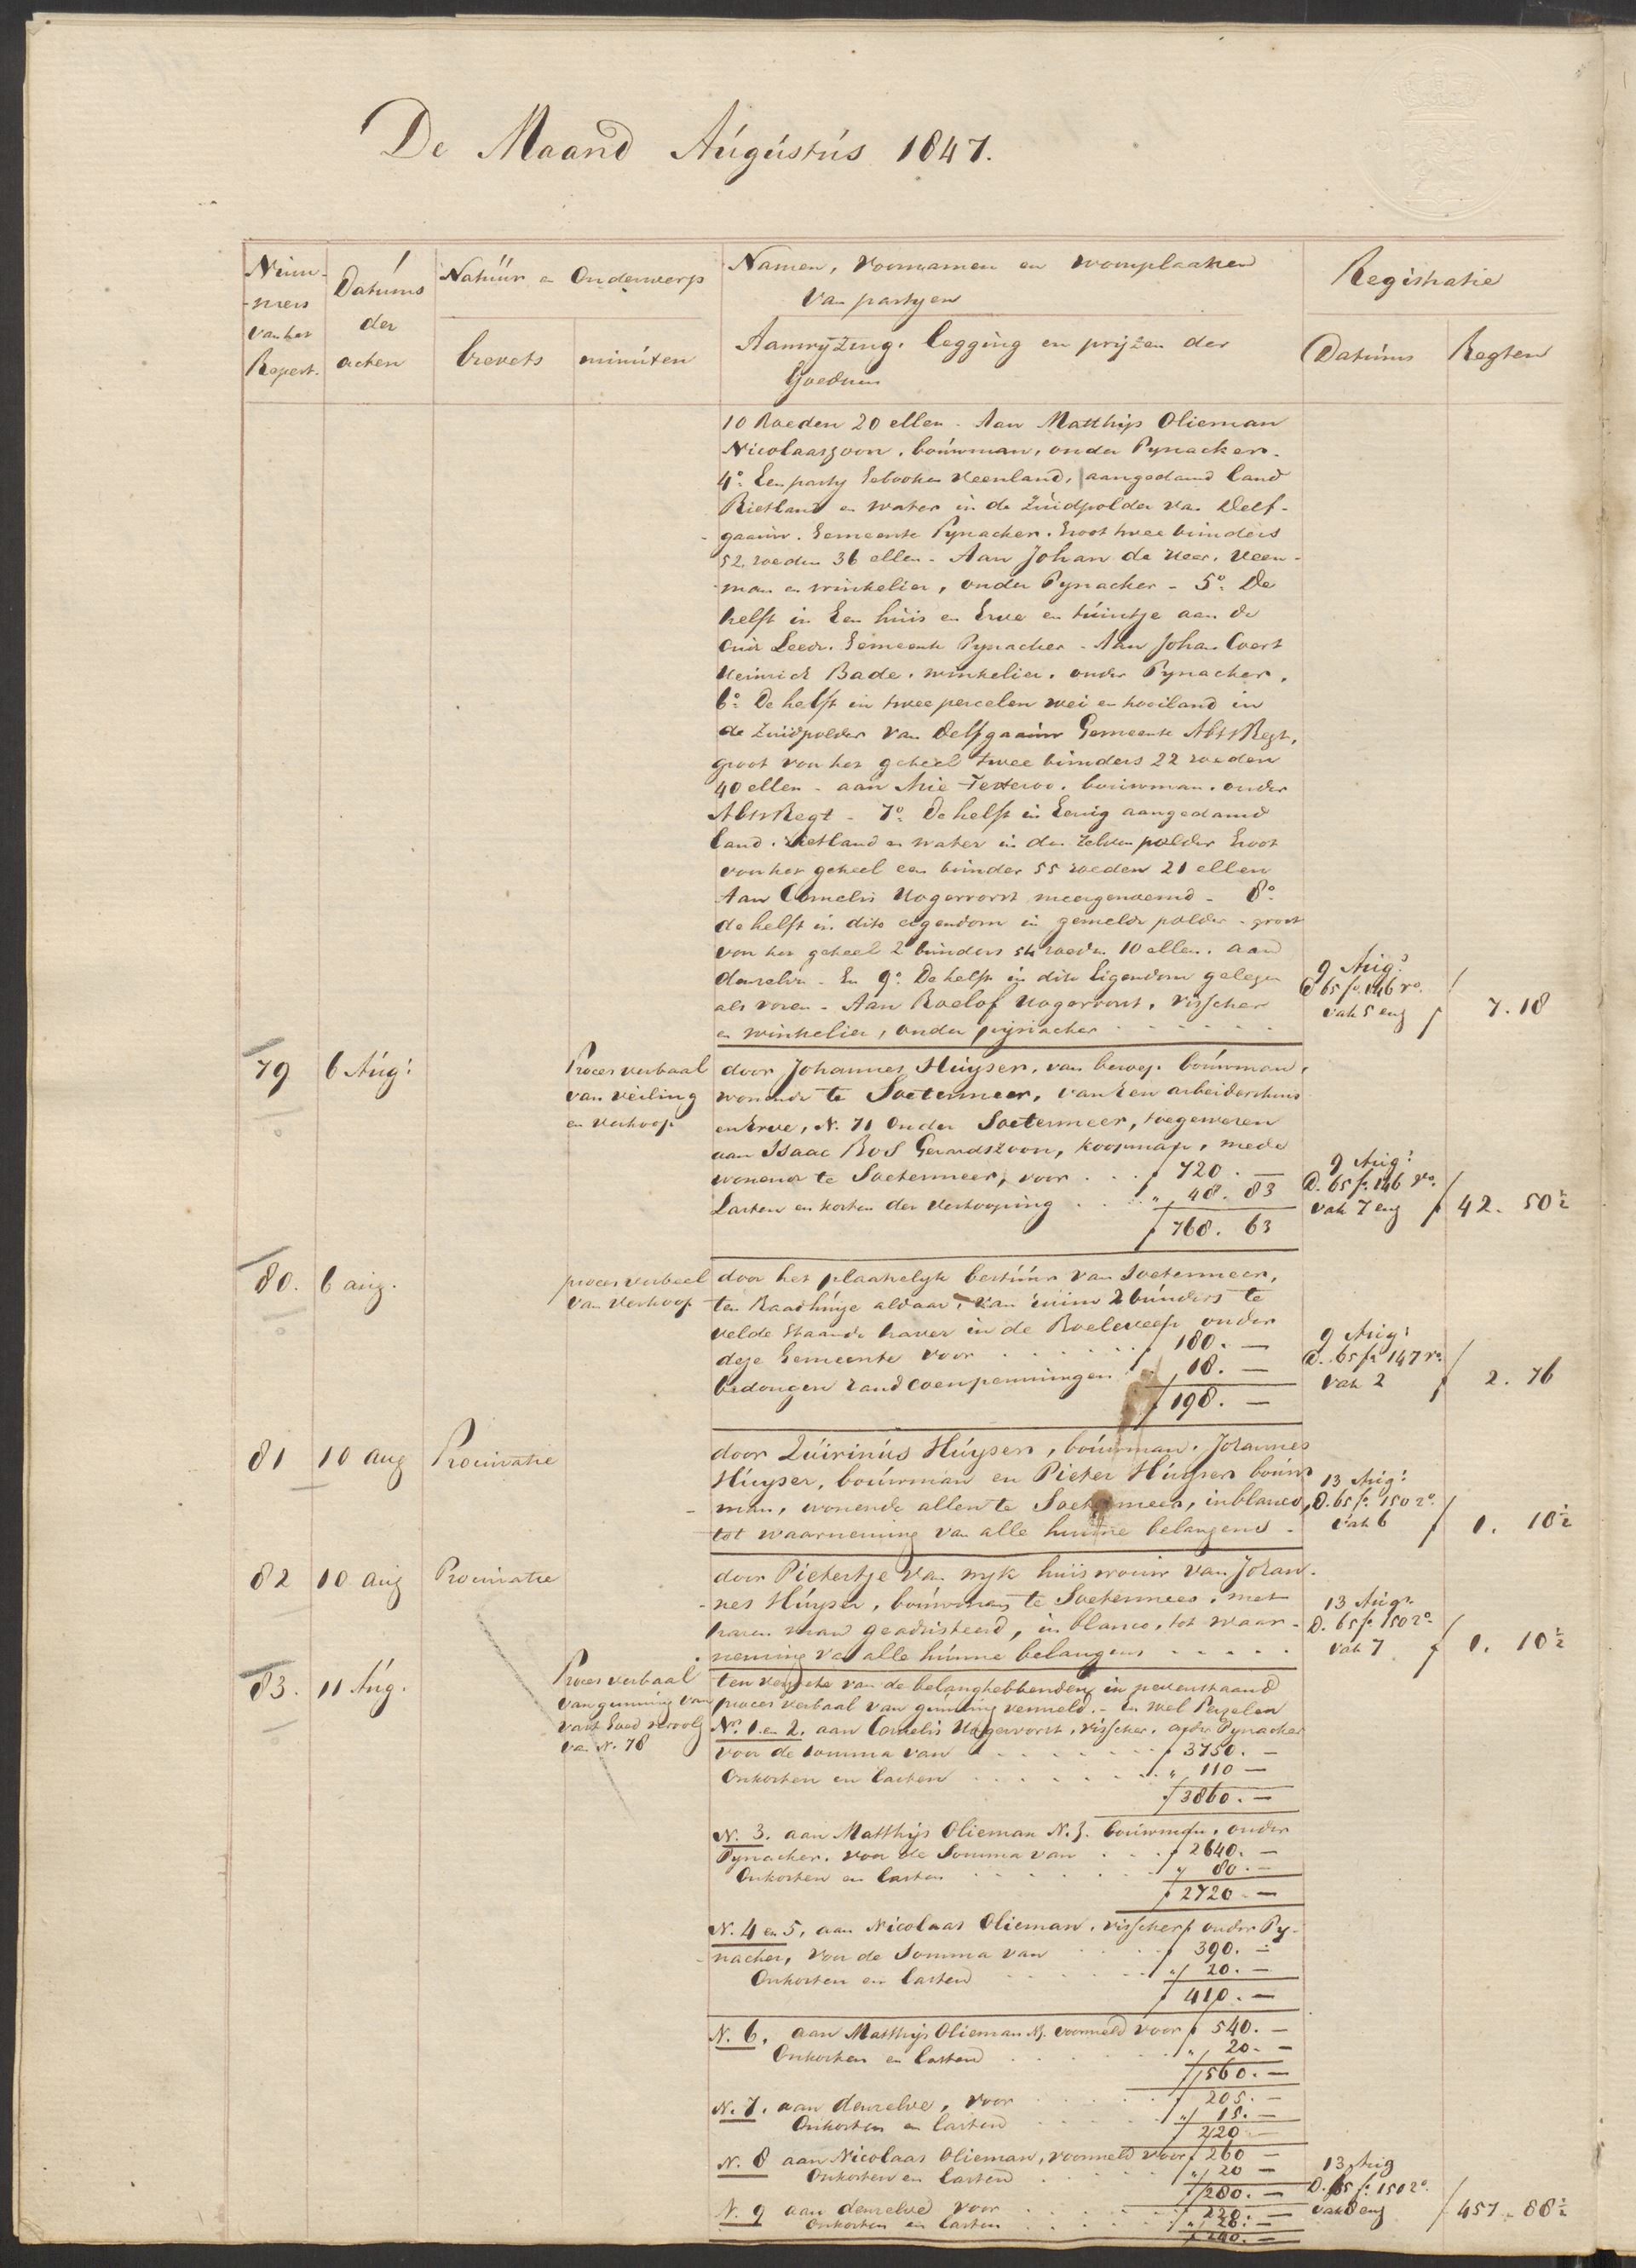 De Maand Augustus 1847.
Num-
-mers
van het
Repert.
Datums
der
acten
Natuur en Onderwerp
brevets
minuten
Namen, Voornamen en woonplaatsen
van partyen
Aanwyzing, legging en pryzen der
Goederen
Registratie
Datums
Regten
10 Roeden 20 ellen - Aan Matthijs Olieman
Nicolaaszoon, bouwman, onder Pynacker.
4o. Een party gebroken Veenland, aangedamd land
Rietland en water in de Zuidpolder van Delf-
-gaauw. Gemeente Pynacker. Groot twee bunders
52 roeden 36 ellen - Aan Johan de Heer, Veen-
-man en winkelier, onder Pynacker - 5o. De
helft in Een huis en Erve en tuintje aan de
Oude Leede. Gemeente Pynacker - Aan Johan Coert
Heinrich Bade, winkelier, onder Pynacker,
6o. De helft in twee percelen wei en hooiland in
de Zuidpolder van Delfgaauw Gemeente AbtsRegt,
groot van het geheel twee bunders 22 roeden
40 ellen - aan Arie, bouwman, onder
AbtsRegt - 7o. De helft in Eenig aangedamd
land, Rietland en water in den zelven polder Groot
van het geheel een bunder 55 roeden 21 ellen
Aan Cornelis Hogervorst meergenoemd - 8o.
de helft in dito eigendom in gemelde polder - groot
van het geheel 2 bunders 54 roeden 10 ellen. aan
denzelven - En 9o. De helft in dito Eigendom gelegen
als voren - Aan Roelof Hogervorst, Visscher
en winkelier, onder pynacker
9 Aug:
D 65 fo. 146 ro.
vak 5 enz
f 7.18
79
6 Aug:
Proces verbaal
van veiling
en verkoop
door Johannes Huyser, van beroep bouwman,
wonende te Soetermeer, van Een arbeidershuis
en Erve, N. 71 Onder Soetermeer, toegewezen
aan Isaac Bos Gerardszoon, koopman, mede
wonende te Soetermeer, voor f 720. —
Lasten en kosten der Verkooping " 48. 83
f 768. 63
9 Aug:
D. 65 fo. 146 vo.
vak 7 enz
f 42. 50½
80.
6 aug.
proces verbaal
van Verkoop
door het plaatselyk bestuur van Soetermeer,
ten Raadhuize aldaar, van ruim 2 bunders te
velde Staande haver in de Roeleveen onder
deze Gemeente voor f 180. —
bedongen rand coenpenningen 18. —
f 198. —
9 Aug:
D. 65 fo. 147 ro.
vak 2
f 2. 76
81
10 aug
Procuratie
door Quirinus Huyser, bouwman, Johannes
Huyser, bouwman en Pieter Huyser bouw
-man, wonende allen te Soetermeer, in blanco,
tot waarneming van alle hunne belangens -
13 Aug:
D. 65 fo. 150 ro.
vak 6
f 1. 10½
82
10 aug
Procuratie
door Pietertje van wyk huisvrouw van Johan-
-nes Huyser, bouwman, te Soetermeer, met
haren man geadsisteerd, in blanco, tot waar-
neming van alle hunne belangens
13 Aug:
D. 65 fo. 150 ro.
vak 7
f 1. 10½
83.
11 Aug.
Proces verbaal
van gunning van
vast Goed vervolg
van N. 78
ten verzoeke van de belanghebbenden in nevenstaand
proces verbaal van gunning vermeld. - En wel Perzelen
No. 1 en 2, aan Cornelis Hogervorst, Visscher, onder Pynacker
voor de somma van f 3750. —
Onkosten en lasten " 110 —
f 3860. —
N. 3. aan Matthijs Olieman N.z. bouwman, onder
Pynacker, voor de Somma van f 2640. —
Onkosten en lasten " 80. —
f 2720. —
N. 4 en 5, aan Nicolaas Olieman, visscher, onder Py-
-nacker, voor de Somma van f 390. —
Onkosten en lasten " 20. —
f 410. —
N. 6, aan Matthijs Olieman Nz. voormeld voor f 540. —
Onkosten en lasten " 20. —
f 560. —
N. 7. aan denzelve, voor f 205. —
Onkosten en lasten " 15. —
f 220 —
N. 8 aan Nicolaas Olieman, voormeld voor f 260 —
Onkosten en lasten " 20 —
f 280. —
N. 9 aan denzelve voor f 220. —
Onkosten en lasten " 20. —
f 240. —
13 Aug
D. 65 fo. 150 ro.
vak 8 enz
f 457. 88½